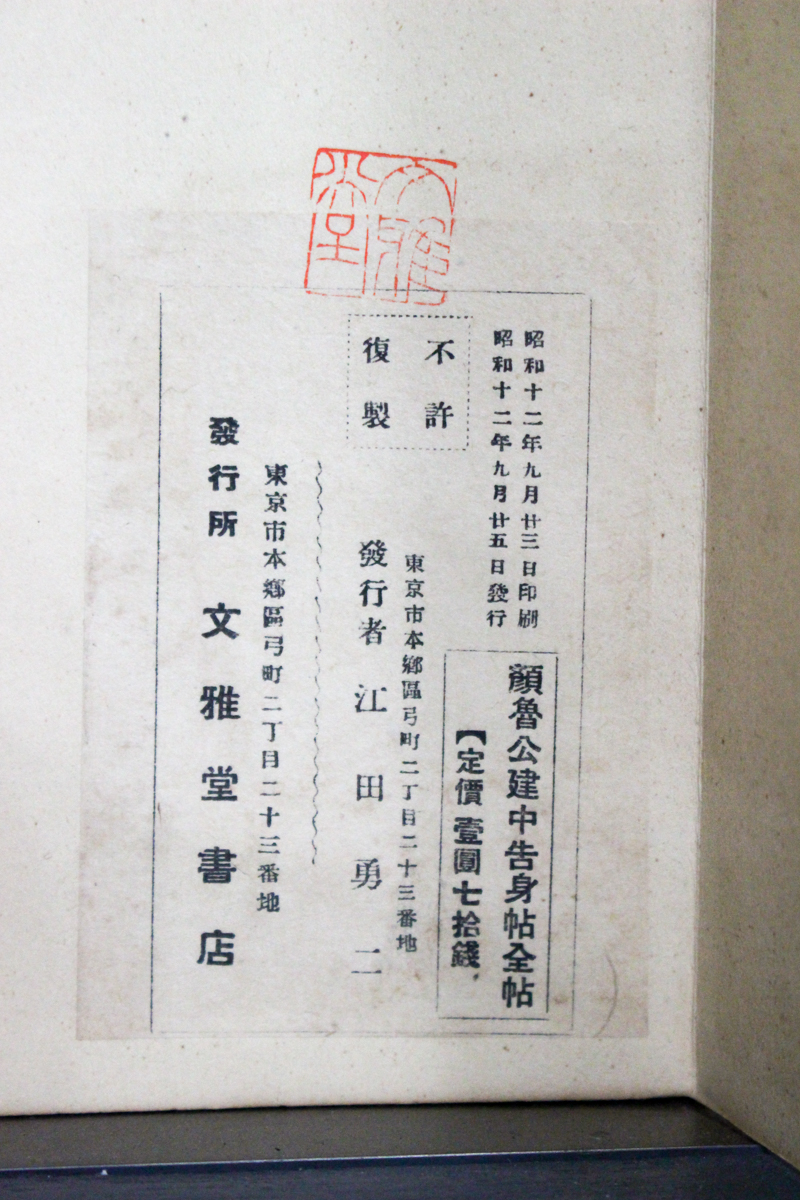 文雅堂
昭和十二年九月廿三日印刷
昭和十二年九月廿五日發行
顏魯公建中告身帖全帖
【定價壹圓七拾錢
不許
復製
東京市本鄉區弓町二丁目二十三番地
發行者 江田勇二
東京市本鄉區弓町二丁目二十三番地
發行所 文雅堂書店